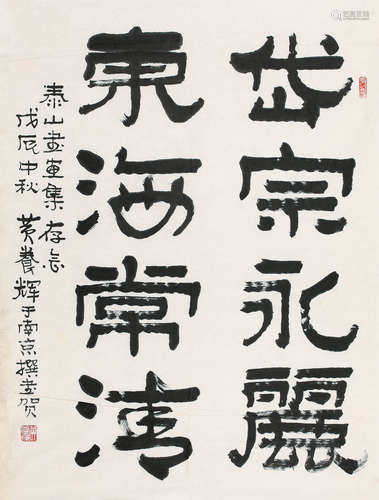 岱宗永麗
東海常清
泰山畫軍集存念
戊辰中秋 黄養輝于南京撰書賀